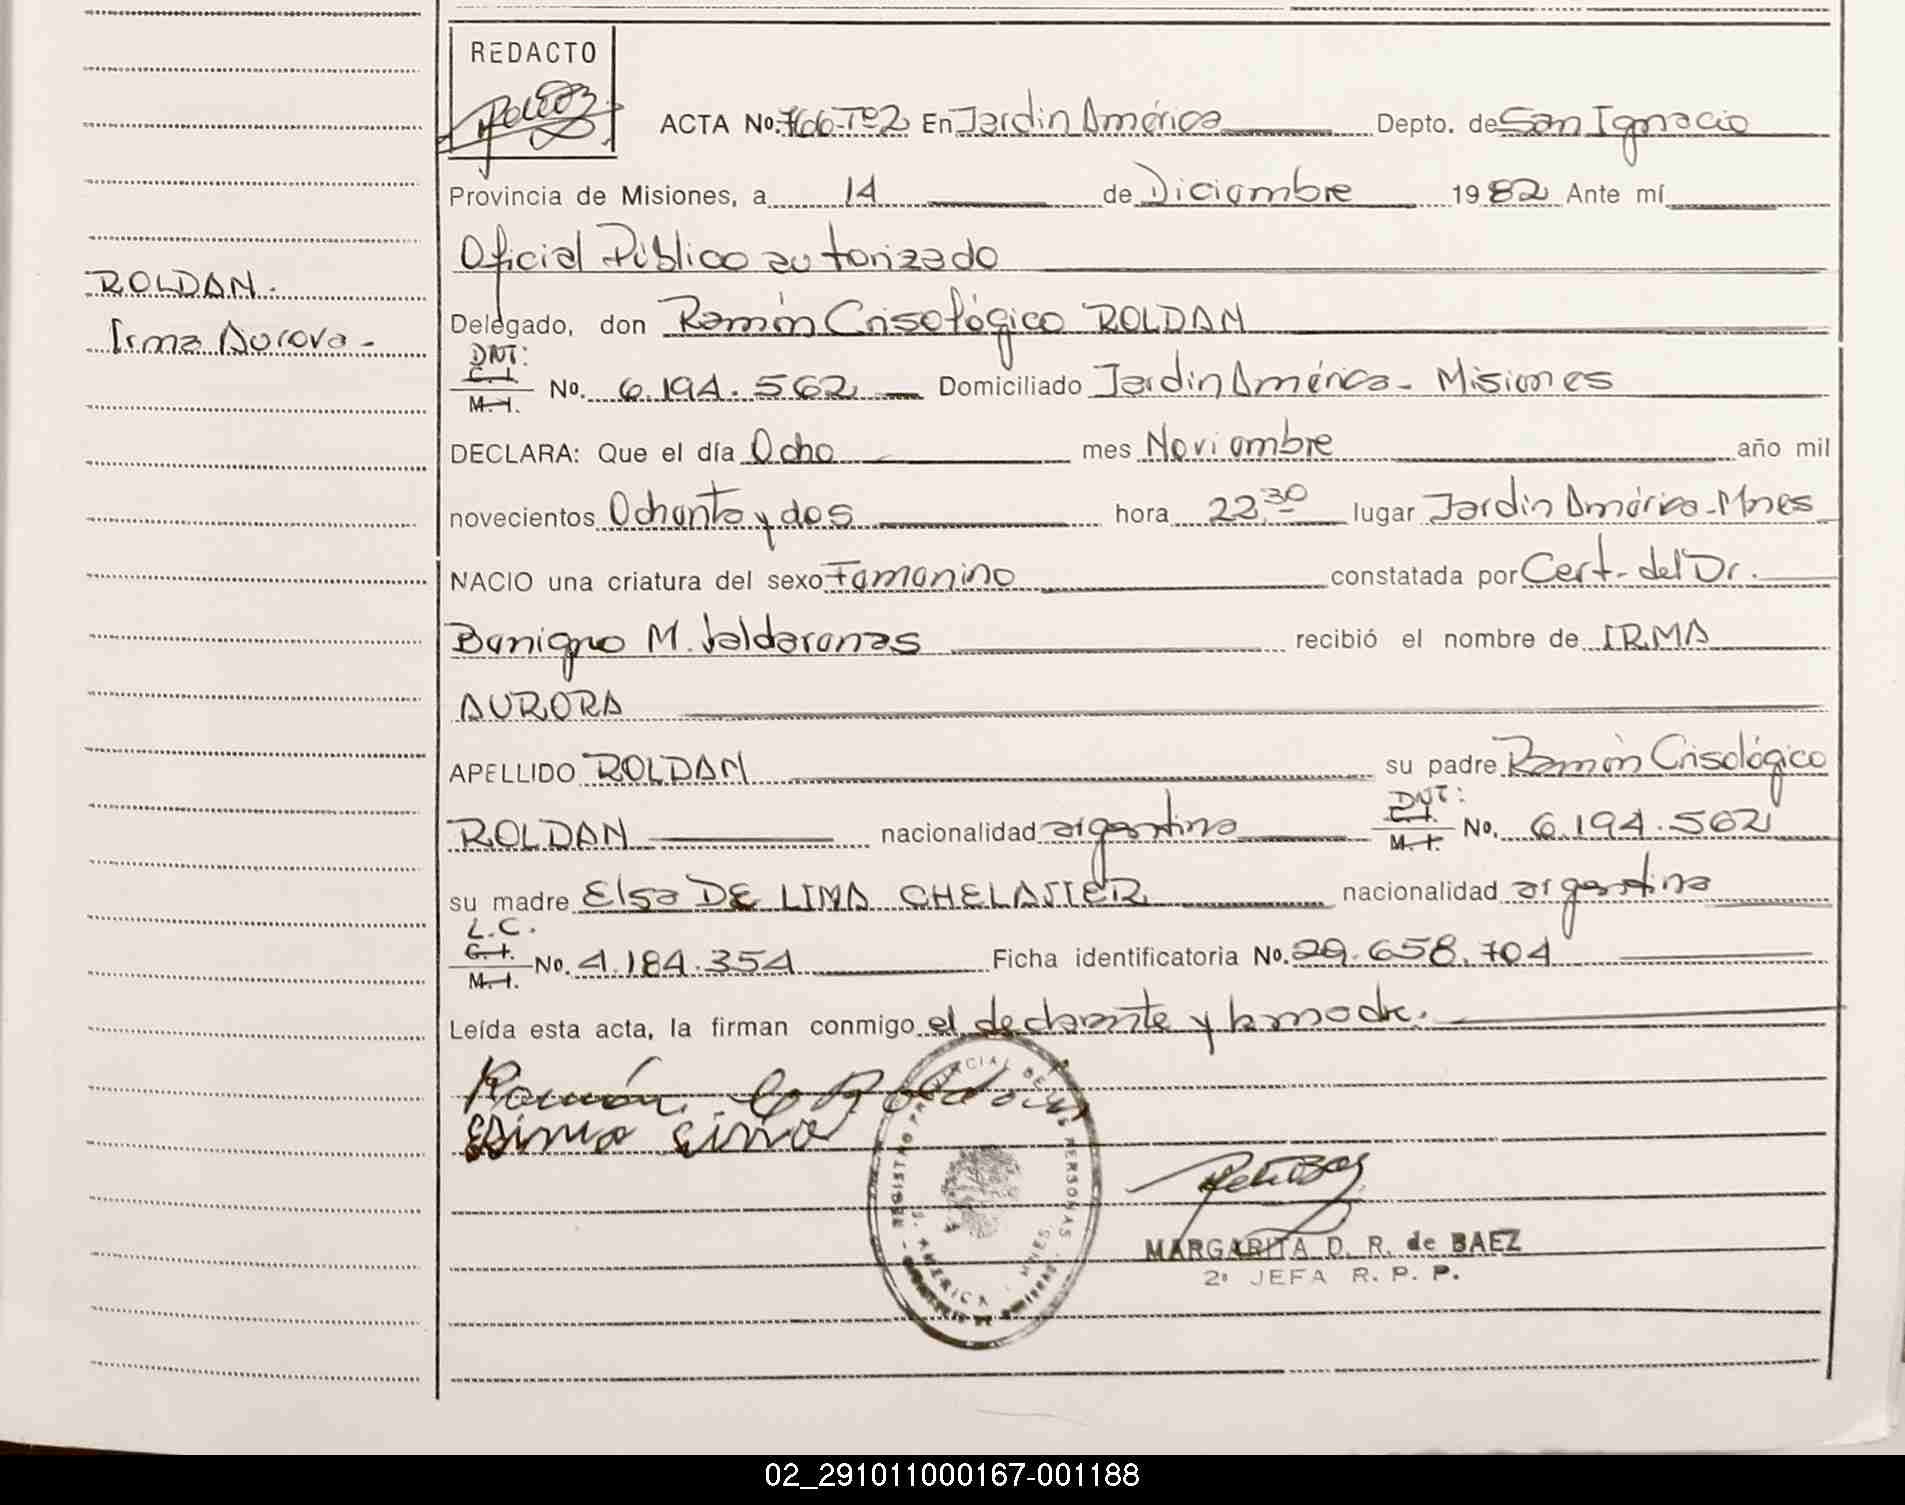 REDACTO
ACTA No. 766-Tº2 En Jardin América Depto. de San Ignacio
Provincia de Misiones, a 14 de Diciembre 1982 Ante mí
Oficial Público autorizado
ROLDAN.
Delegado, don Ramón Crisológico ROLDAN
Irma Aurora -
DNI:
C. I.
M. I. No. 6.194.562 Domiciliado Jardin América - Misiones
DECLARA: Que el día Ocho mes Noviembre año mil
novecientos Ochenta y dos hora 22,30 lugar Jardin América - Mnes
NACIO una criatura del sexo Femenino constatada por Cert. del Dr.
Benigno M. Valdarenas recibió el nombre de IRMA
AURORA
APELLIDO ROLDAN su padre Ramón Crisológico
ROLDAN nacionalidad argentina DNI: C. I. M. I. No. 6.194.562
su madre Elsa DE LIMA CHELASIER nacionalidad argentina
L.C.
C. I.
M. I. No. 4.184.354 Ficha identificatoria No. 29.658.704
Leída esta acta, la firman conmigo el declarante y la madre.
Ramón C Roldan
REGISTRO PROVINCIAL DE LAS PERSONAS
J. AMERICA - MNES
MARGARITA D. R. de BAEZ
2ª JEFA R. P. P.
02_291011000167-001188